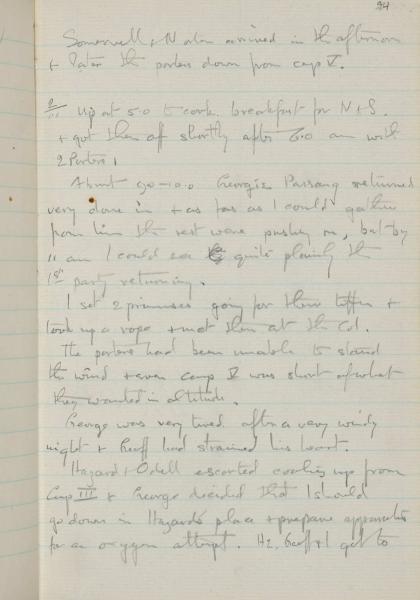 24
Somervell & Norton arrived in the afternoon
& later the porters down from camp V.
2/ up at 5.0 to cook breakfast for N & S.
& got them off shortly after 6.0 am with
2 Porters.
About 9.0-10.0 George's Pasang returned
very done in & as far as I could gather
from him the rest were pushing on, but by
11 am I could see quite plainly the
1st party returning.
I set 2 primuses going for their tiffin &
took up a rope & met them at the Col.
The porters had been unable to stand
the wind & even camp V was short of what
they wanted in altitude.
George was very tired after a very windy
night & Geoff had strained his heart.
Hazard & Odell escorted cooking up from
Camp III & George decided that I should
go down in Hazard's place & prepare apparatus
for an oxygen attempt. He, Geoff & I got to